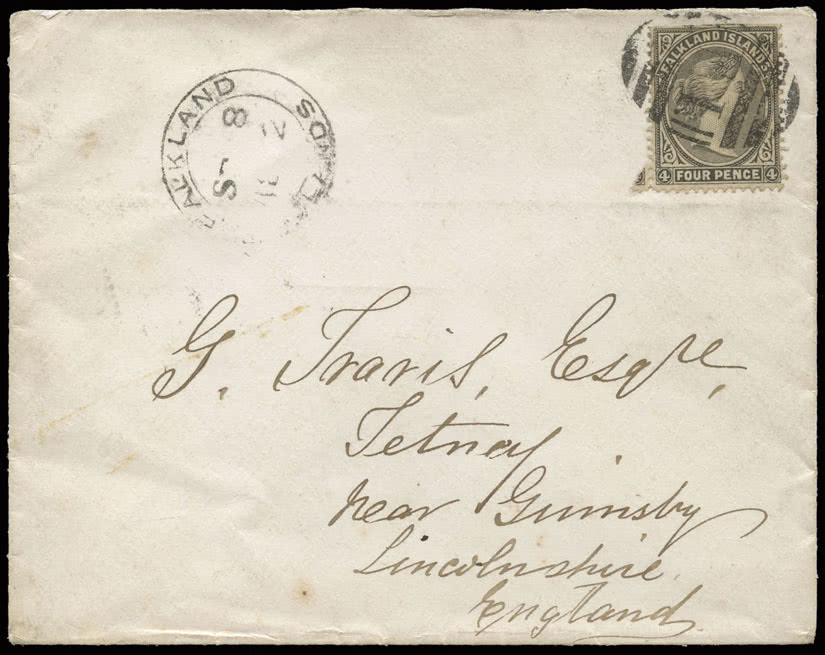 FALKLAND ISLANDS
4 FOUR PENCE 4
FALKLAND
G. Travis, Esqre,
Tetney
near Grimsby
Lincolnshire
England